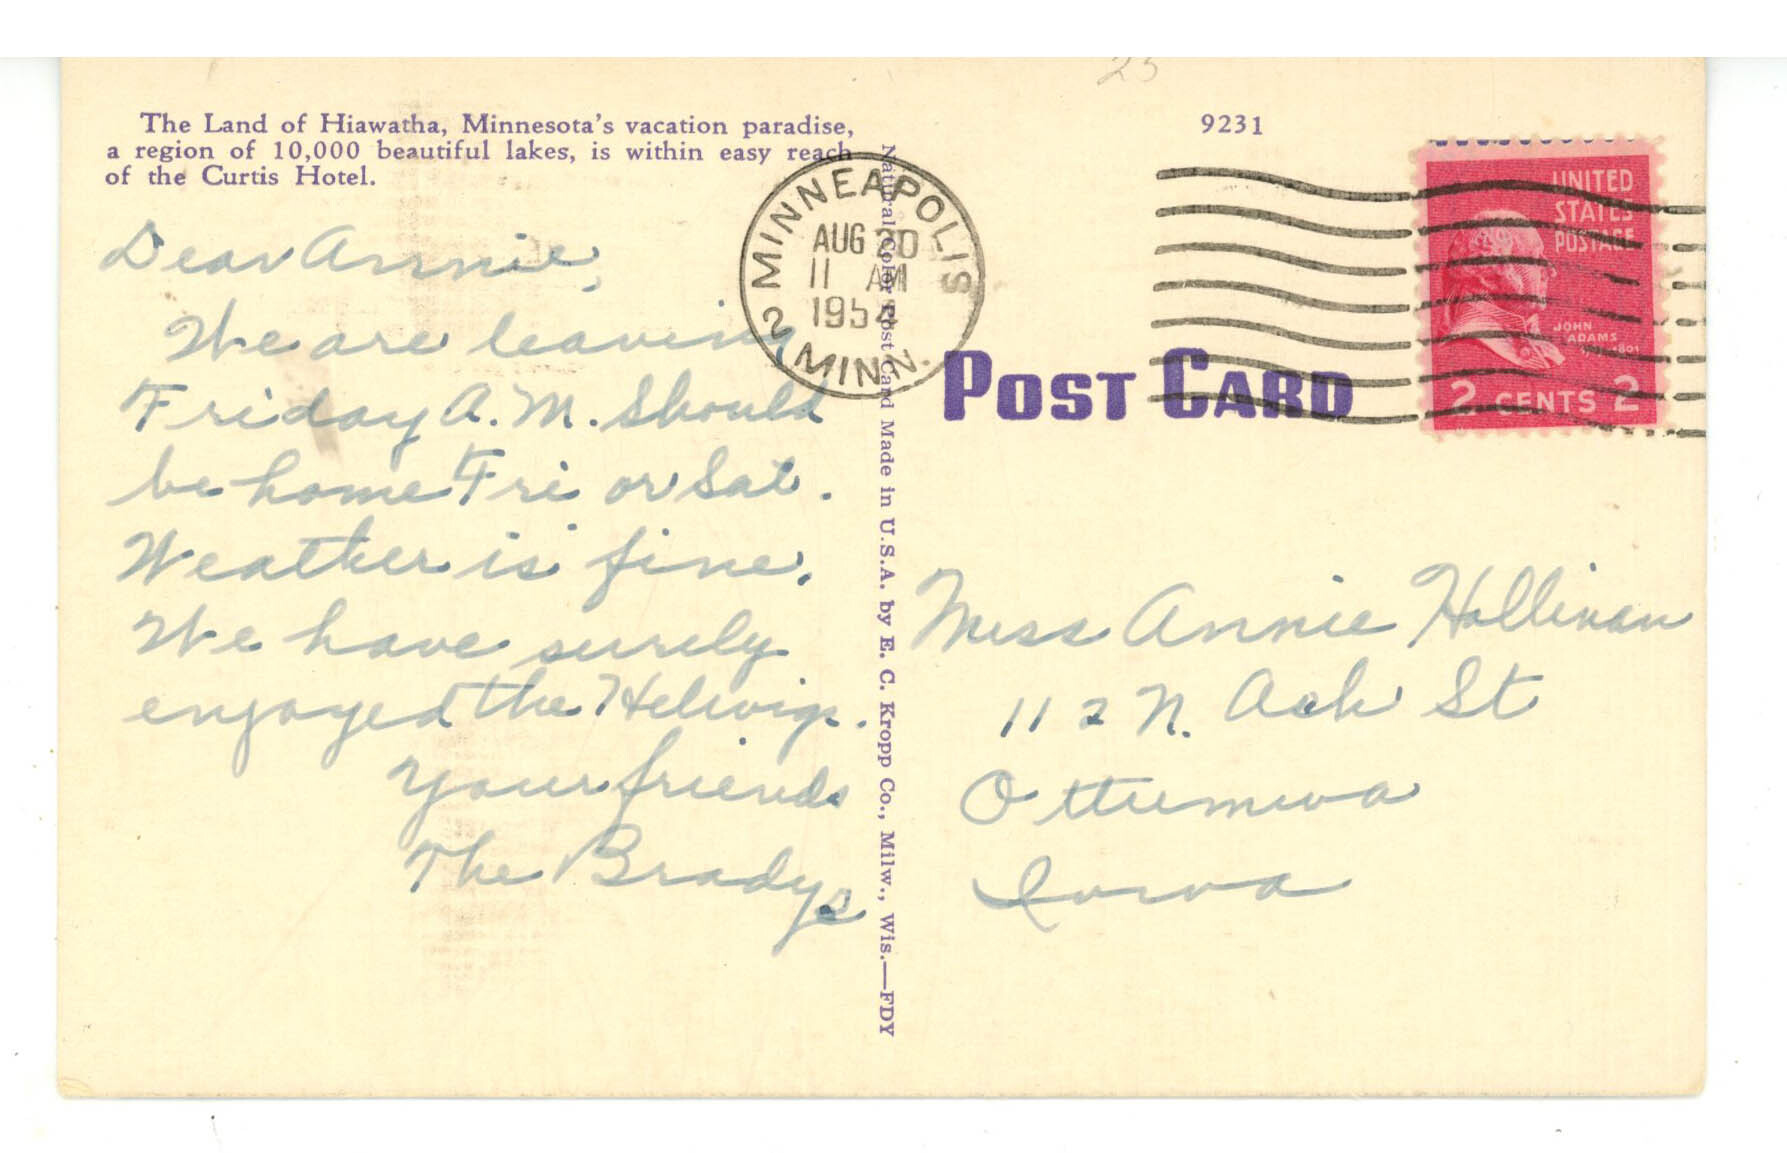 25
The Land of Hiawatha, Minnesota's vacation paradise,
a region of 10,000 beautiful lakes, is within easy reach
of the Curtis Hotel.
Dear Annie,
We are leaving
Friday A.M. Should
be home Fri or Sat.
Weather is fine.
We have surely
enjoyed the Helwigs.
Your friends
The Bradys
Natural Color Post Card Made in U.S.A. by E. C. Kropp Co., Milw., Wis.—FDY
MINNEAPOLIS
AUG 20
11 AM
1954
2 MINN.
9231
UNITED
STATES
POSTAGE
JOHN
ADAMS
1801
2 CENTS 2
POST CARD
Miss Annie Hollivan
112 N. Ash St
Ottumwa
Iowa